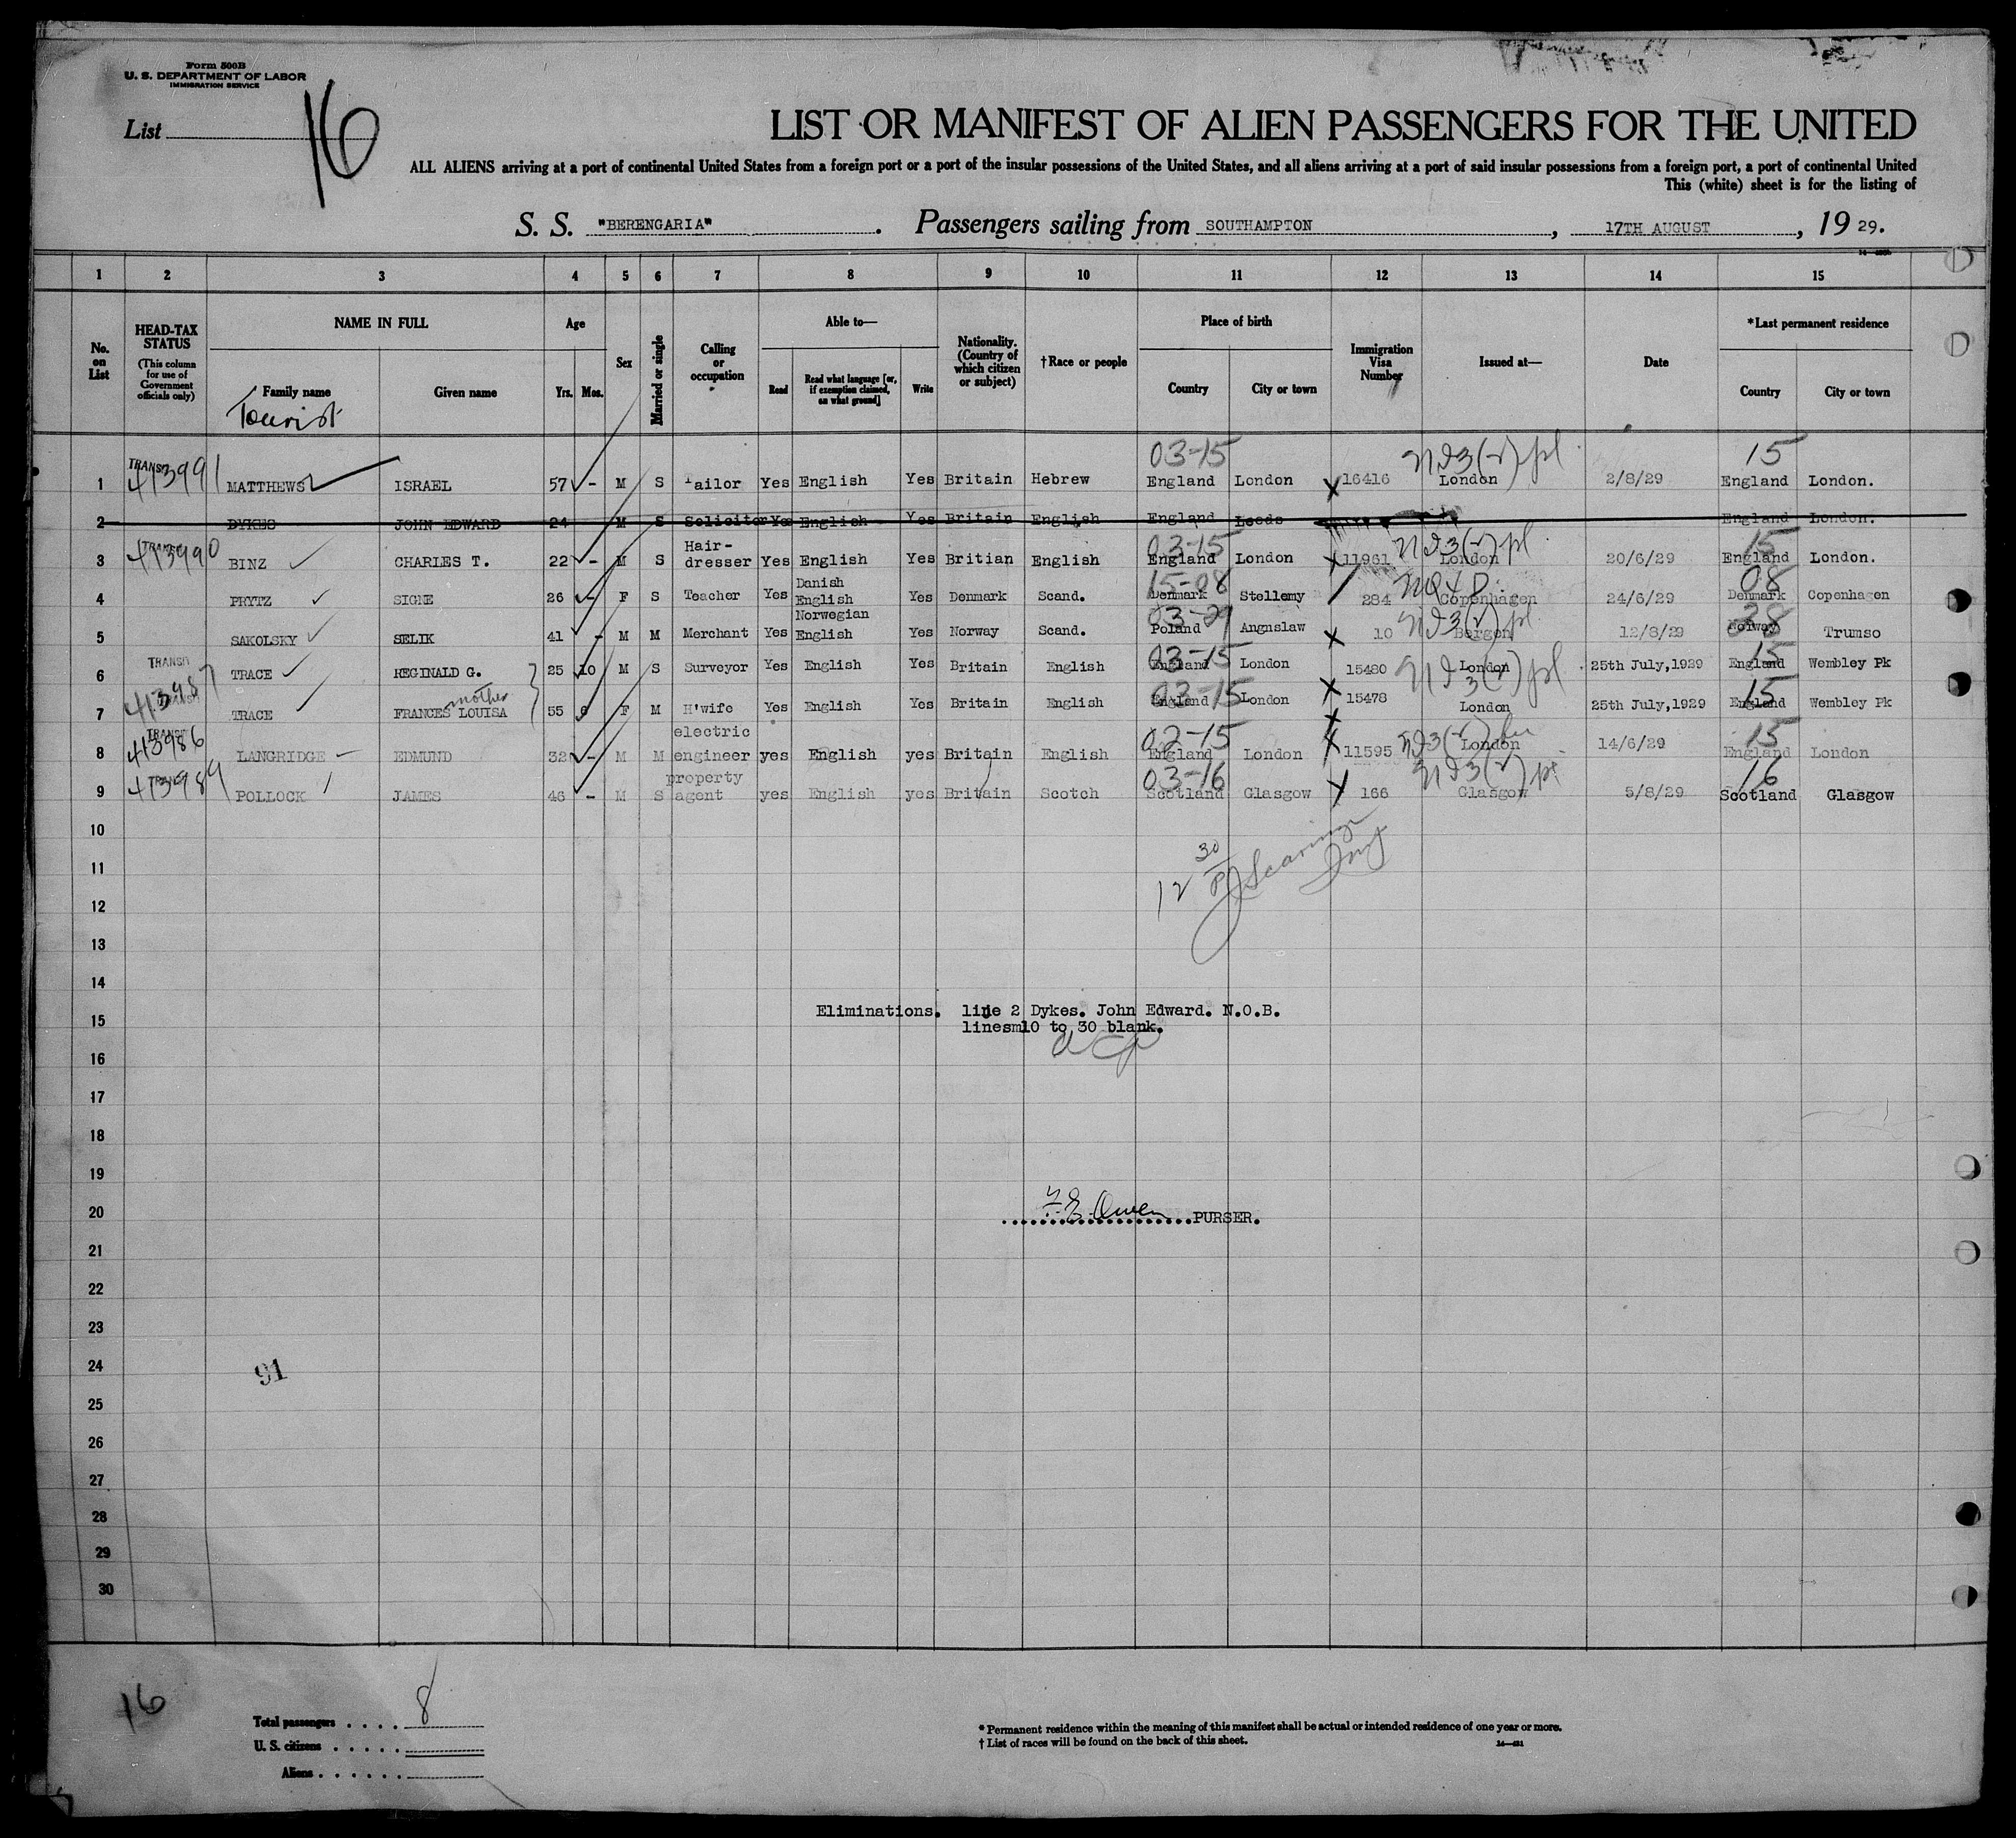 Form 500B
U. S. DEPARTMENT OF LABOR
IMMIGRATION SERVICE
List 16
LIST OR MANIFEST OF ALIEN PASSENGERS FOR THE UNITED
ALL ALIENS arriving at a port of continental United States from a foreign port or a port of the insular possessions of the United States, and all aliens arriving at a port of said insular possessions from a foreign port, a port of continental United
This (white) sheet is for the listing of
S. S. "BERENGARIA" . Passengers sailing from SOUTHAMPTON , 17TH AUGUST , 19 29.
1 2 3 4 5 6 7 8 9 10 11 12 13 14 15
No. on List
HEAD-TAX STATUS (This column for use of Government officials only)
NAME IN FULL
Family name
Given name
Age
Yrs. Mos.
Sex
Married or single
Calling or occupation
Able to—
Read
Read what language [or, if exemption claimed, on what ground]
Write
Nationality. (Country of which citizen or subject)
†Race or people
Place of birth
Country
City or town
Immigration Visa Number
Issued at—
Date
*Last permanent residence
Country
City or town
Tourist
03-15 15
1 TRANSIT 413991 MATTHEWS ISRAEL 57 - M S Tailor Yes English Yes Britain Hebrew England London 16416 London 2/8/29 England London.
2 DYKES JOHN EDWARD 24 M S Solicitor Yes English Yes Britain English England Leeds England London.
03-15 15
3 TRANSIT 413990 BINZ CHARLES T. 22 - M S Hair-dresser Yes English Yes Britian English England London 11961 London 20/6/29 England London.
15-08 08
4 PRYTZ SIGNE 26 - F S Teacher Yes Danish English Yes Denmark Scand. Denmark Stellemy 284 Copenhagen 24/6/29 Denmark Copenhagen
03-29 28
5 SAKOLSKY SELIK 41 - M M Merchant Yes Norwegian English Yes Norway Scand. Poland Angnslaw 10 Bergen 12/8/29 Norway Trumso
03-15 15
6 TRANSIT TRACE REGINALD G. 25 10 M S Surveyor Yes English Yes Britain English England London 15480 London 25th July,1929 England Wembley Pk
mother
03-15 15
7 TRANSIT 413987 TRACE FRANCES LOUISA 55 6 F M H'wife Yes English Yes Britain English England London 15478 London 25th July,1929 England Wembley Pk
02-15 15
8 TRANSIT 413986 LANGRIDGE EDMUND 32 - M M electric engineer yes English yes Britain English England London 11595 London 14/6/29 England London
03-16 16
9 TRANSIT 413989 POLLOCK JAMES 46 - M S property agent yes English yes Britain Scotch Scotland Glasgow 166 Glasgow 5/8/29 Scotland Glasgow
10
11
12
13
14
15
Eliminations. line 2 Dykes. John Edward. N.O.B.
linesm10 to 30 blank.
16
17
18
19
20
PURSER.
21
22
23
24
91
25
26
27
28
29
30
16
Total passengers . . . . 8
U. S. citizens . . . . .
Aliens . . . . . .
* Permanent residence within the meaning of this manifest shall be actual or intended residence of one year or more.
† List of races will be found on the back of this sheet.